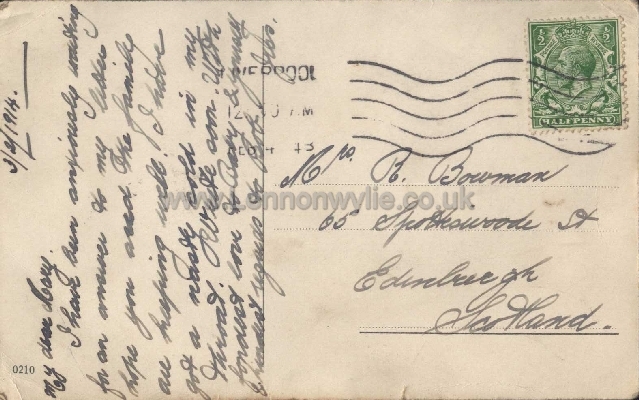 3/2/1914.
My dear Mary.
I have been anxiously waiting
for an answer to my letter
hope you and the family
are keeping well. I have
got a nasty cold in my
throat. Write soon. With
fondest love to Mary & yourself
& kindest regards to Bob.
LIVERPOOL
12.30 AM
FEB 4 13
½ ½
HALFPENNY
Mrs R. Bowman
65 Spottiswoode St
Edinburgh
Scotland.
www.lennonwylie.co.uk
0210